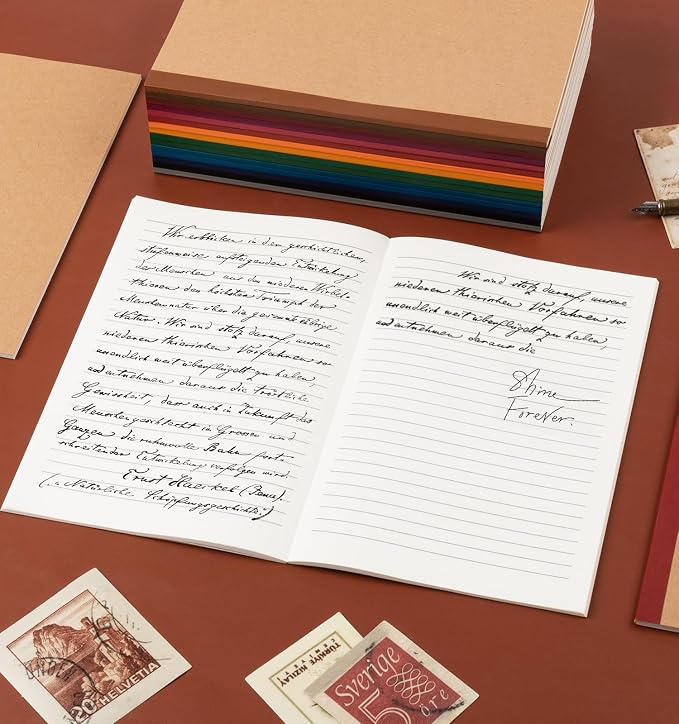 Wir erblicken in der geschichtlichen,
stufenweise aufsteigenden Entwickelung
der Menschen aus den niederen Wirbel-
thieren den höchsten Triumph der
Menschennatur über die gesammte übrige
Natur. Wir sind stolz darauf, unsere
niederen thierischen Vorfahren so
unendlich weit überflügelt zu haben,
und entnehmen daraus die tröstliche
Gewissheit, dass auch in Zukunft das
Menschengeschlecht im Grossen und
Ganzen die ruhmvolle Bahn fort-
schreitender Entwickelung verfolgen wird.
Ernst Haeckel (Jena).
(in Natürliche Schöpfungsgeschichte.)
Wir sind stolz darauf, unsere
niederen thierischen Vorfahren so
unendlich weit überflügelt zu haben
und entnehmen daraus die
Shine
Forever.
20 HELVETIA
TÜRKİYE KIZILAY
Sverige
5 öre